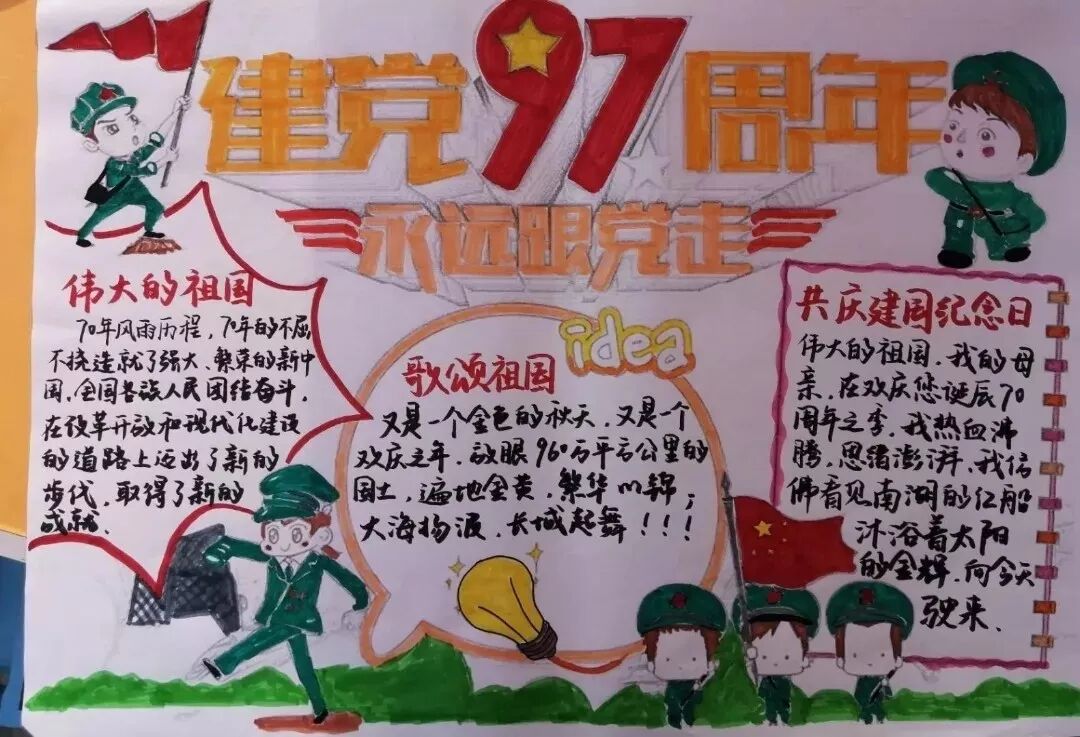 建党97周年
永远跟党走
伟大的祖国
70年风雨历程，70年的不屈
不挠造就了强大、繁荣的新中
国，全国各族人民团结奋斗，
在改革开放和现代化建设
的道路上迈出了新的
步伐，取得了新的
成就.
idea
歌颂祖国
又是一个金色的秋天，又是一个
欢庆之年，放眼960万平方公里的
国土，遍地金黄，繁华似锦；
大海扬波，长城起舞！！！
共庆建国纪念日
伟大的祖国，我的母
亲，在欢庆您诞辰70
周年之季，我热血沸
腾，思绪澎湃，我仿
佛看见南湖的红船
沐浴着太阳
的金辉，向今天
驶来.